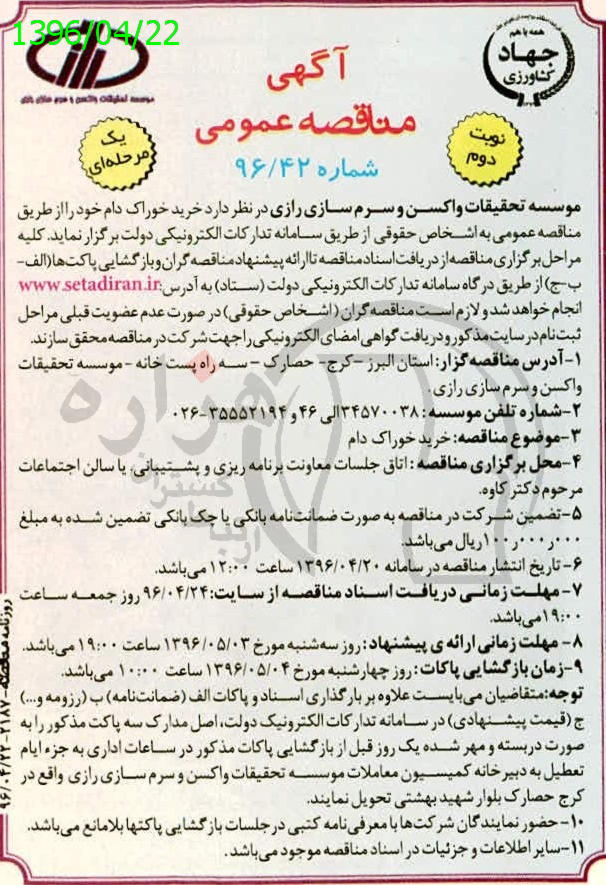 1396/04/22
همه با هم
جهاد
کشاورزی
موسسه تحقیقات واکسن و سرم سازی رازی
آگهی
مناقصه عمومی
شماره ۹۶/۴۲
نوبت
دوم
یک
مرحله‌ای
موسسه تحقیقات واکسن و سرم سازی رازی در نظر دارد خرید خوراک دام خود را از طریق
مناقصه عمومی به اشخاص حقوقی از طریق سامانه تدارکات الکترونیکی دولت برگزار نماید. کلیه
مراحل برگزاری مناقصه از دریافت اسناد مناقصه تا ارائه پیشنهاد مناقصه گران و بازگشایی پاکت‌ها (الف-
ب-ج) از طریق درگاه سامانه تدارکات الکترونیکی دولت (ستاد) به آدرس: www.setadiran.ir
انجام خواهد شد و لازم است مناقصه گران (اشخاص حقوقی) در صورت عدم عضویت قبلی مراحل
ثبت‌نام در سایت مذکور و دریافت گواهی امضای الکترونیکی را جهت شرکت در مناقصه محقق سازند.
۱-آدرس مناقصه‌گزار: استان البرز -کرج- حصارک - سه راه پست خانه - موسسه تحقیقات
واکسن و سرم سازی رازی.
۲-شماره تلفن موسسه: ۳۴۵۷۰۰۳۸ الی ۴۶ و ۳۵۵۵۲۱۹۴-۰۲۶
۳-موضوع مناقصه: خرید خوراک دام
۴-محل برگزاری مناقصه: اتاق جلسات معاونت برنامه ریزی و پشتیبانی، یا سالن اجتماعات
مرحوم دکتر کاوه.
۵-تضمین شرکت در مناقصه به صورت ضمانت‌نامه بانکی یا چک بانکی تضمین شده به مبلغ
۱۰۰٫۰۰۰٫۰۰۰ ریال می‌باشد.
۶- تاریخ انتشار مناقصه در سامانه ۱۳۹۶/۰۴/۲۰ ساعت ۱۲:۰۰ می‌باشد.
۷- مهلت زمانی دریافت اسناد مناقصه از سایت: ۹۶/۰۴/۲۴ روز جمعه ساعت
۱۹:۰۰ می‌باشد.
۸- مهلت زمانی ارائه‌ی پیشنهاد: روز سه‌شنبه مورخ ۱۳۹۶/۰۵/۰۳ ساعت ۱۹:۰۰ می‌باشد.
۹-زمان بازگشایی پاکات: روز چهارشنبه مورخ ۱۳۹۶/۰۵/۰۴ ساعت ۱۰:۰۰ می‌باشد.
توجه: متقاضیان می‌بایست علاوه بر بارگذاری اسناد و پاکات الف (ضمانت‌نامه) ب (رزومه و...)
ج (قیمت پیشنهادی) در سامانه تدارکات الکترونیک دولت، اصل مدارک سه پاکت مذکور را به
صورت دربسته و مهر شده یک روز قبل از بازگشایی پاکات مذکور در ساعات اداری به جزء ایام
تعطیل به دبیرخانه کمیسیون معاملات موسسه تحقیقات واکسن و سرم سازی رازی واقع در
کرج حصارک بلوار شهید بهشتی تحویل نمایند.
۱۰- حضور نمایندگان شرکت‌ها با معرفی‌نامه کتبی در جلسات بازگشایی پاکتها بلامانع می‌باشد.
۱۱-سایر اطلاعات و جزئیات در اسناد مناقصه موجود می‌باشد.
روزنامه مناقصه - ۲۱۸۷ - ۹۶/۰۴/۲۲
هزاره